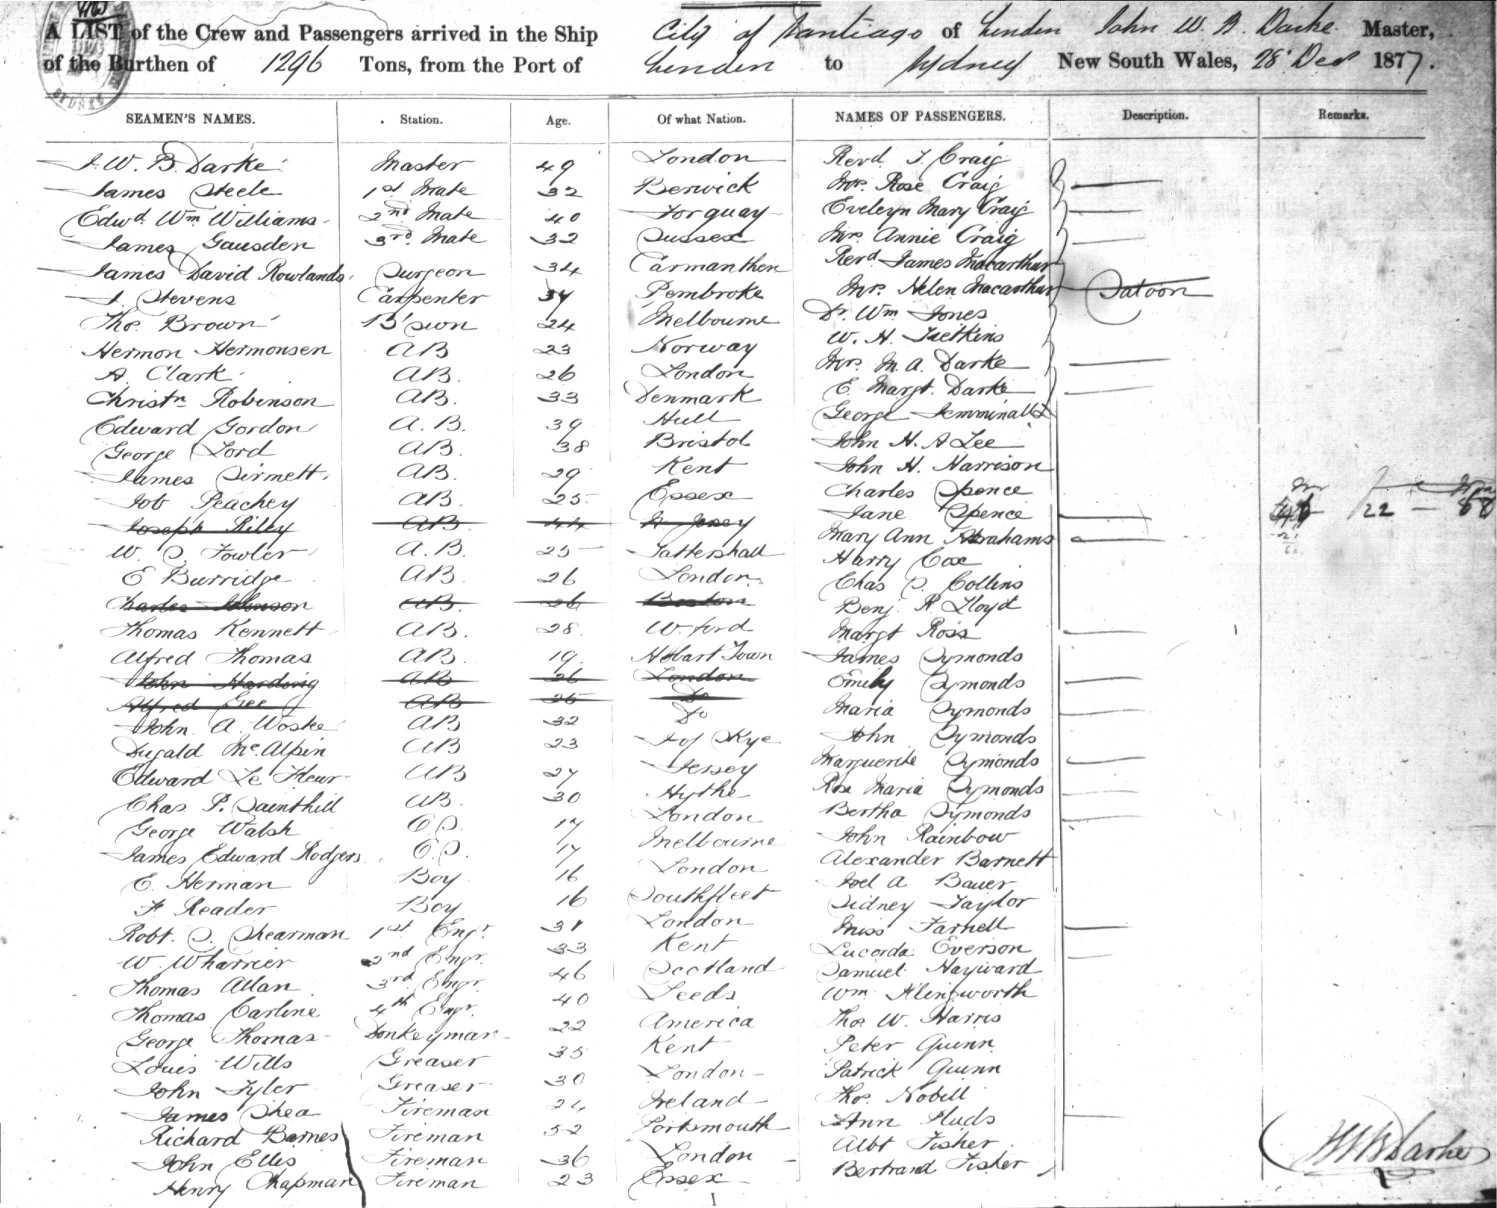 A LIST of the Crew and Passengers arrived in the Ship City of Santiago of London John W. B. Darke Master,
of the Burthen of 1296 Tons, from the Port of London to Sydney New South Wales, 28 Dec 1877.
SEAMEN'S NAMES. Station. Age. Of what Nation. NAMES OF PASSENGERS. Description. Remarks.
J. W. B. Darke Master 49 London Revd J. Craig
James Steele 1st Mate 32 Berwick Mrs Rose Craig
Edwd Wm Williams 2nd Mate 40 Torquay Eveleyn Mary Craig
James Gausden 3rd Mate 32 Sussex Mrs Annie Craig
James David Rowlands Surgeon 34 Carmanthen Revd James Macarthur
J. Stevens Carpenter 34 Pembroke Mrs Helen Macarthur Saloon
Thos Brown B'swn 24 Melbourne Dr Wm Jones
Hermon Hermonsen AB 23 Norway W. H. Tietkins
A Clark AB. 26 London Mrs M. A. Darke
Christn Robinson AB. 33 Denmark E Margt. Darke
Edward Gordon A.B. 39 Hull George
George Lord AB. 38 Bristol John H. A Lee
James Sirmett AB. 29 Kent John H. Harrison
Job Peachey AB. 25 Essex Charles Spence 22
Joseph Rilby AB 44 N Jersey Jane Spence
W. S. Fowler A.B. 25 Tattershall Mary Ann Abrahams
E Burridge AB. 26 London Harry Cox
Charles Johnson AB. 26 Boston Chas S. Collins
Thomas Kennett AB. 28 W. ford Benj. R Lloyd
Alfred Thomas AB. 19 Hobart Town Margt Ross
John Harding AB 26 London James Symonds
Alfred Gee AB 25 Do Emily Symonds
John A. Woske AB 32 Do Maria Symonds
Dugald McAlpin AB 23 I of Skye John Symonds
Edward Le Fleur AB 27 Jersey Marguerite Symonds
Chas P. Sainthill AB. 30 Hythe Rose Maria Symonds
George Walsh O.S. 17 London Bertha Symonds
James Edward Rodgers O.S. 17 Melbourne John Rainbow
E. Herman Boy 16 London Alexander Barnett
F Reader Boy 16 Southfleet Joel A Bauer
Robt. S. Shearman 1st Engr. 31 London Sidney Taylor
W Wharrier 2nd Engr. 33 Kent Miss Farnell
Thomas Allan 3rd Engr. 46 Scotland Lucorda Everson
Thomas Carline 4th Engr. 40 Leeds Samuel Hayward
George Thomas Donkeyman 22 America Wm Klingworth
Louis Wills Greaser 35 Kent Thos W. Harris
John Tyler Greaser 30 London Peter Quinn
James Shea Fireman 24 Ireland Patrick Quinn
Richard Barnes Fireman 32 Portsmouth Thos Nobill
John Ellis Fireman 36 London Ann Fluds
Henry Chapman Fireman 23 Essex Albt Fisher
Bertrand Fisher
JWB Darke